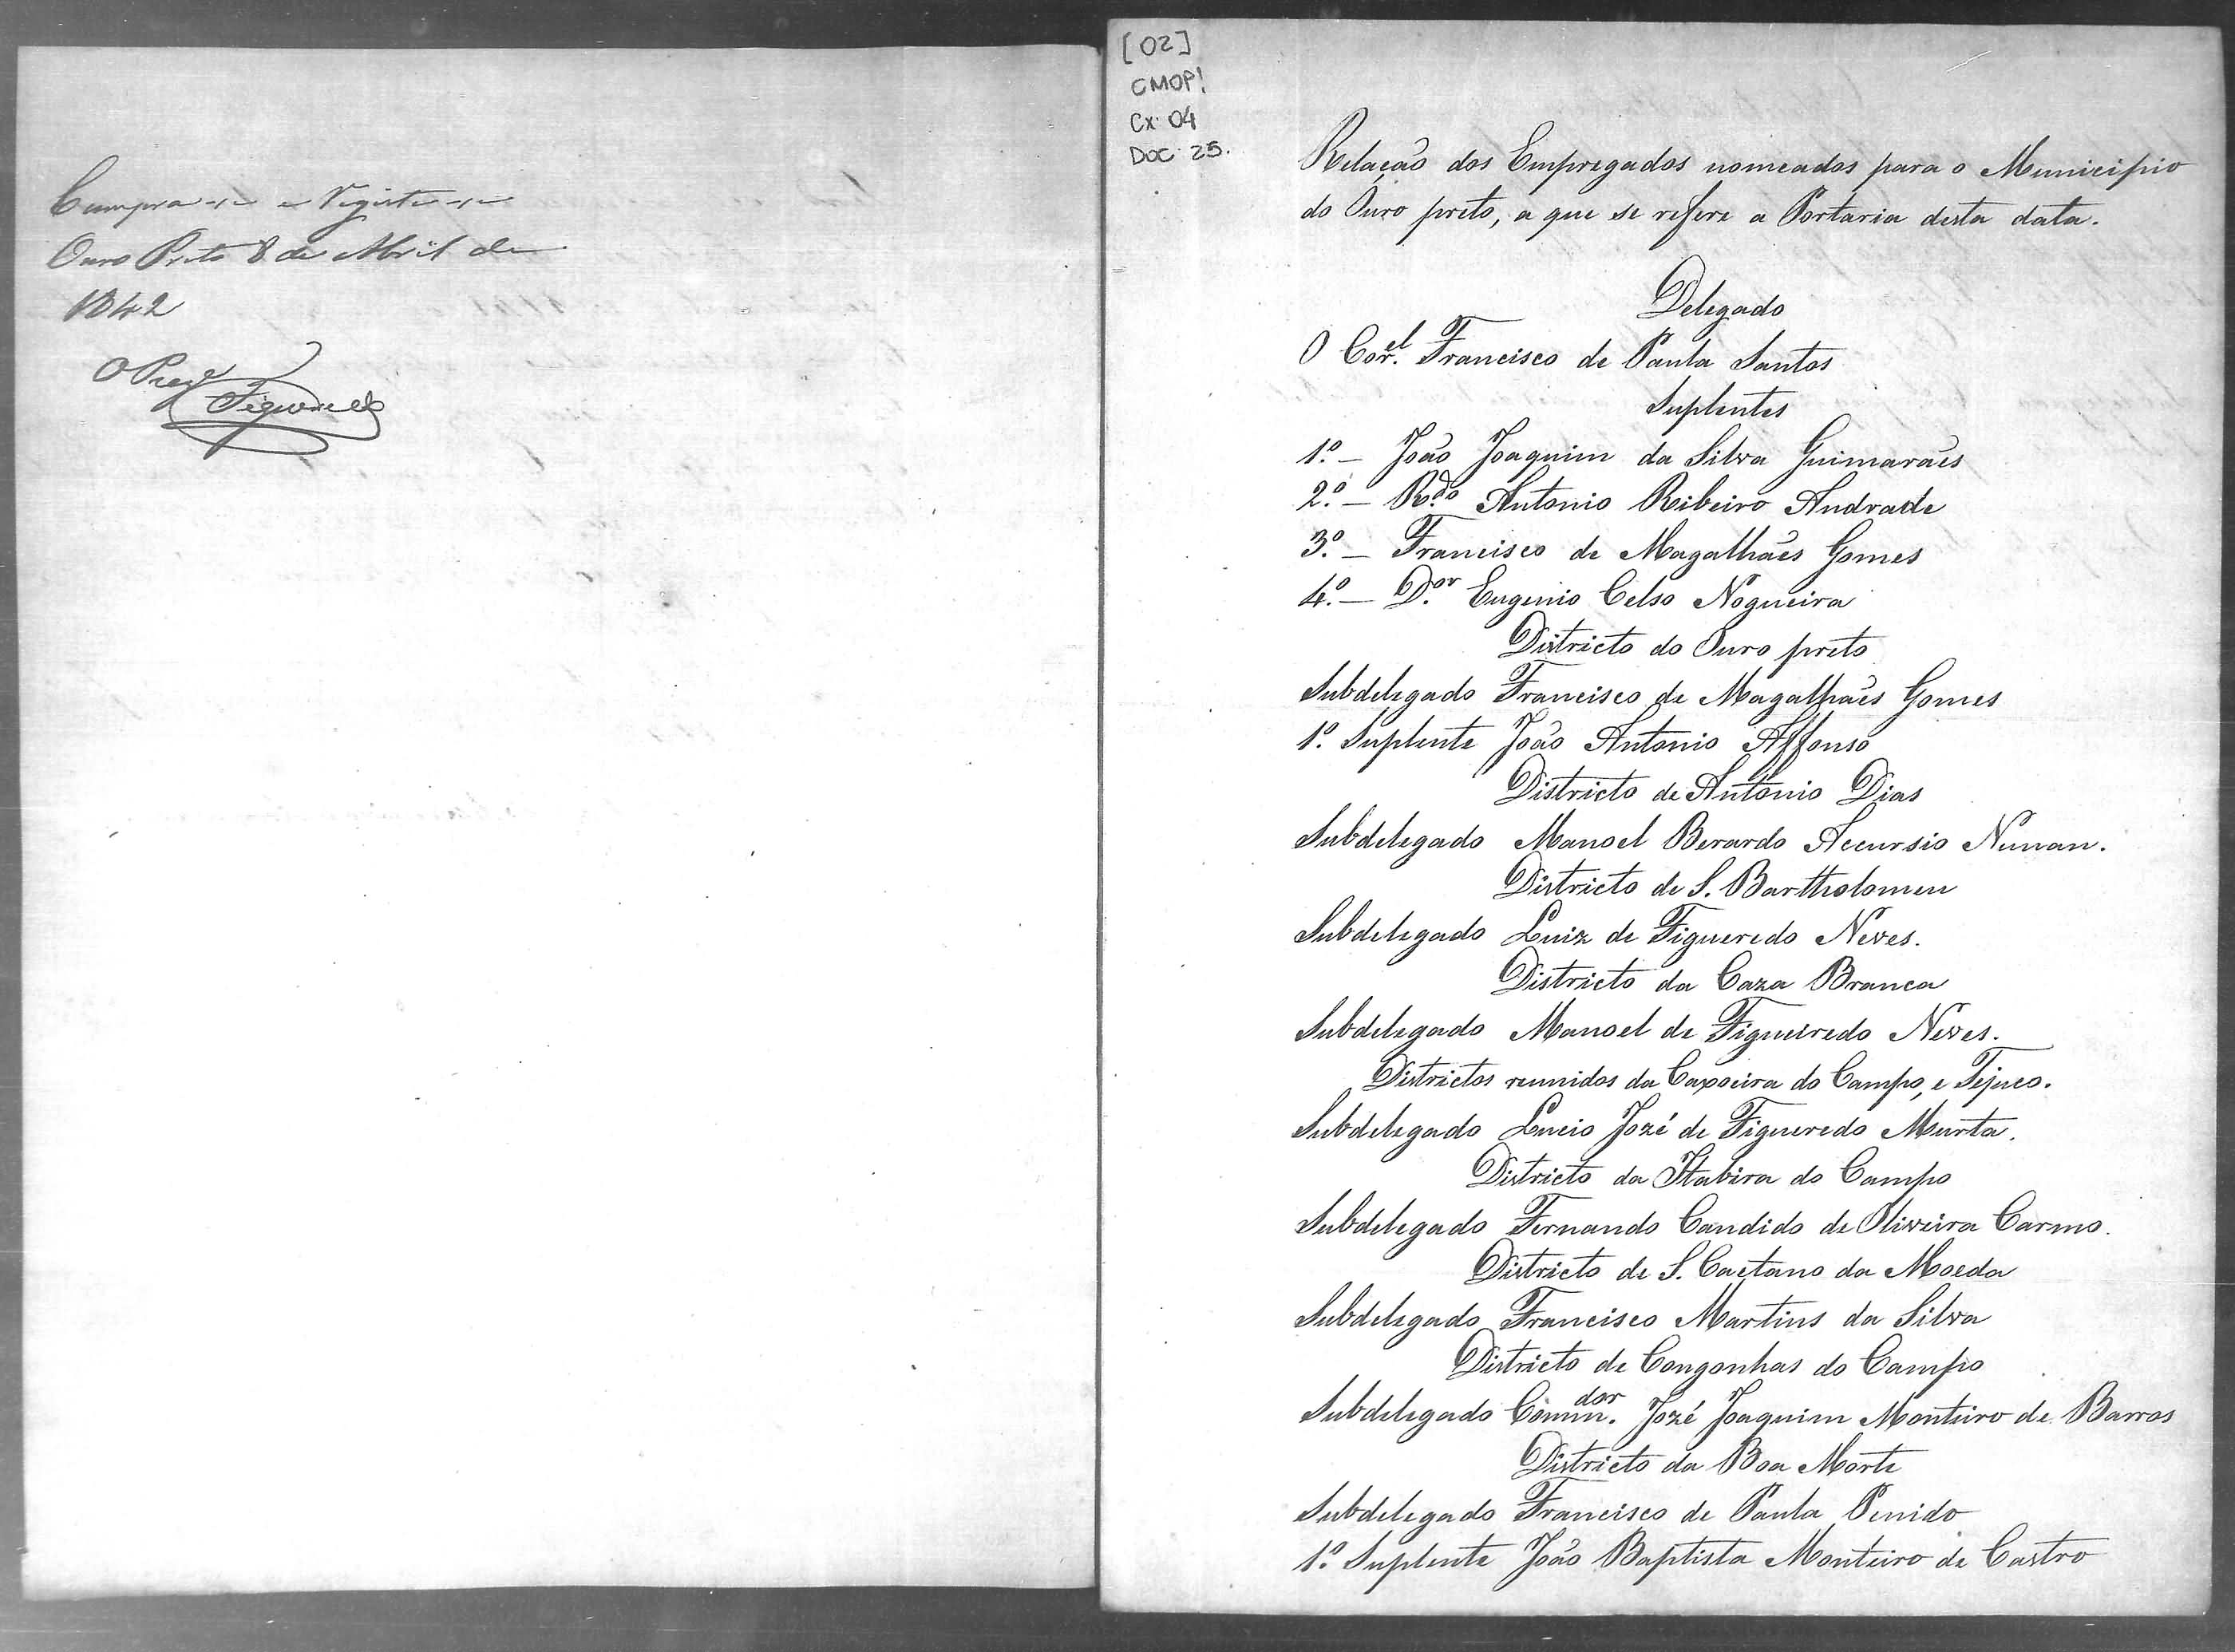 Cumpra-se e Registe-se
Ouro Preto 8 de Abril de
1842
O Preze
Figueiredo
[02]
CMOP!
Cx: 04
DOC: 25.
Relação dos Empregados nomeados para o Municipio
do Ouro preto, a que se refere a Portaria desta data.
Delegado
O Cor.el Francisco de Paula Santos
Suplentes
1.º - João Joaquim da Silva Guimarães
2.º - R.do Antonio Ribeiro Andrade
3.º - Francisco de Magalhães Gomes
4.º - D.or Eugenio Celso Nogueira
Districto do Ouro preto
Subdelegado Francisco de Magalhães Gomes
1.º Suplente João Antonio Affonso
Districto de Antonio Dias
Subdelegado Manoel Berardo Accursio Nunan.
Districto de S. Bartholomeu
Subdelegado Luiz de Figueredo Neves.
Districto da Caza Branca
Subdelegado Manoel de Figueiredo Neves.
Districtos reunidos da Caxoeira do Campo, e Tejuco.
Subdelegado Lucio Jozé de Figueredo Murta.
Districto da Itabira do Campo
Subdelegado Fernando Candido de Oliveira Carmo.
Districto de S. Caetano da Moeda
Subdelegado Francisco Martins da Silva
Districto de Congonhas do Campo
Subdelegado Comm.dor Jozé Joaquim Monteiro de Barros
Districto da Boa Morte
Subdelegado Francisco de Paula Penido
1.º Suplente João Baptista Monteiro de Castro